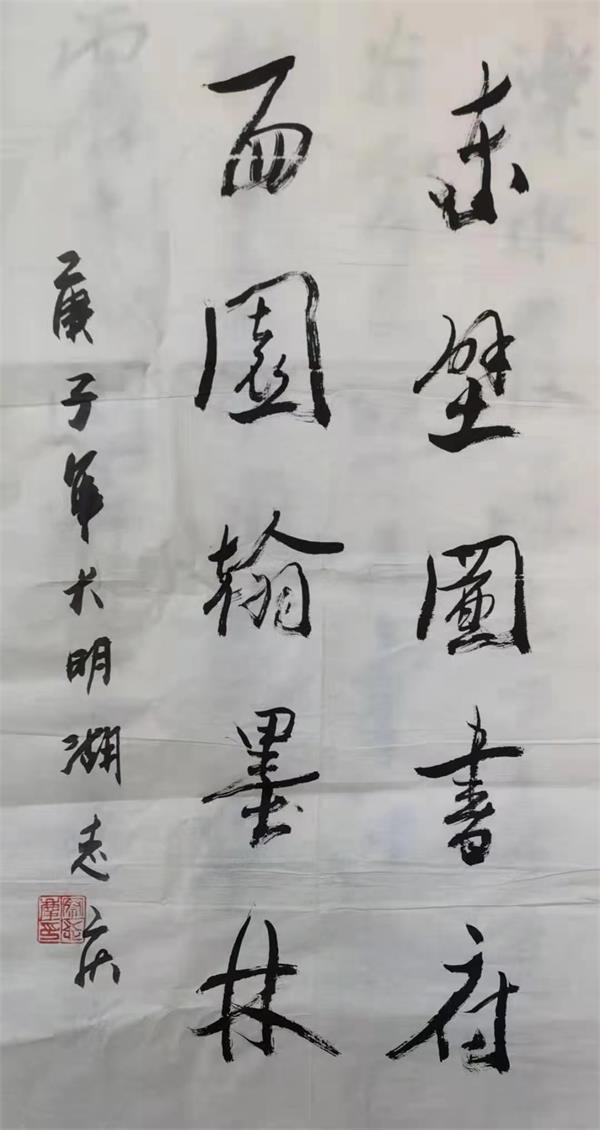 東壁圖書府
西園翰墨林
庚子年大明湖志庆